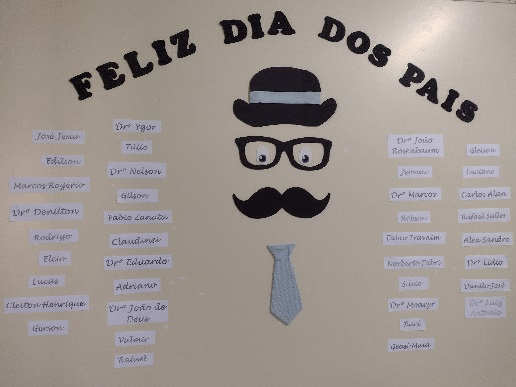 FELIZ DIA DOS PAIS
José Jesus
Edilson
Marcos Rogerio
Drº Denilton
Rodrigo
Elcio
Lucas
Cleiton Henrique
Gerson
Drº Ygor
Tulio
Drº Nelson
Gilson
Fabio
Claudinei
Drº Eduardo
Adriano
Drº João de
Deus
Valmir
Rafael
Drº João
Rosenbaum
Drº Marcos
Norberto
Silvio
Drº Moacyr
Ruri
Gleison
Luciano
Carlos Alan
Rafael
Alex Sandro
Drº Lidio
José
Drº Luiz
Antonio